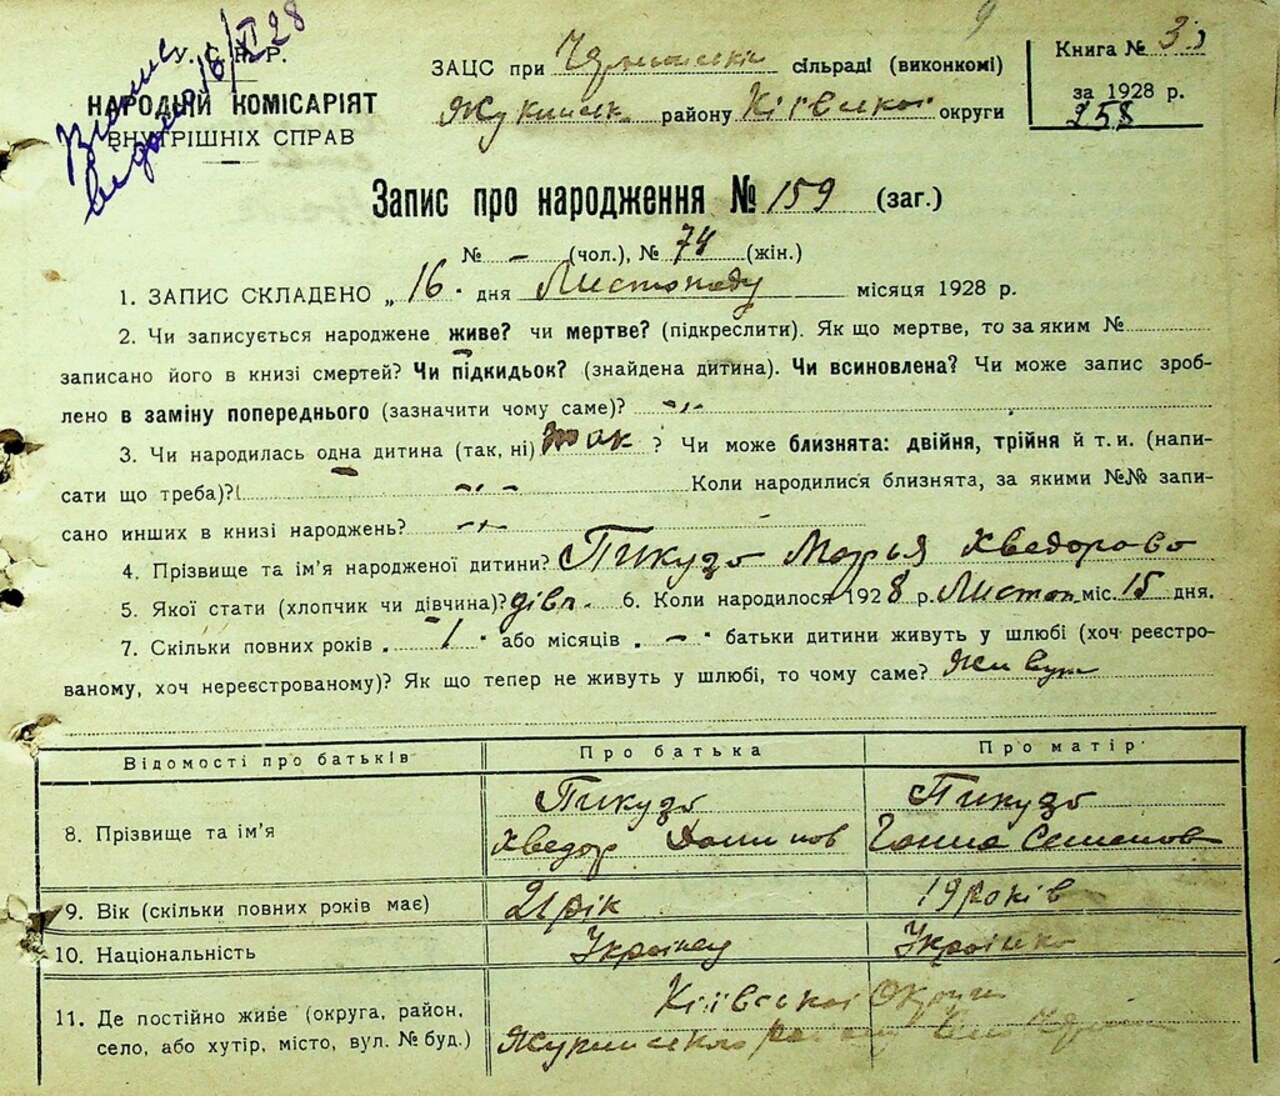 У. С. Р. Р.
НАРОДНІЙ КОМІСАРІЯТ
ВНУТРІШНІХ СПРАВ
Випис
видано 16/XI 28
9
ЗАЦС при сільраді (виконкомі)
району Київської округи
Книга № 3
за 1928 р.
258
Запис про народження № 159 (заг.)
№ - (чол.), № 74 (жін.)
1. ЗАПИС СКЛАДЕНО „16" дня Листопаду місяця 1928 р.
2. Чи записується народжене живе? чи мертве? (підкреслити). Як що мертве, то за яким №
записано його в книзі смертей? Чи підкидьок? (знайдена дитина). Чи всиновлена? Чи може запис зроб-
лено в заміну попереднього (зазначити чому саме)? -„-
3. Чи народилась одна дитина (так, ні) так ? Чи може близнята: двійня, трійня й т. и. (напи-
сати що треба)? -„- Коли народилися близнята, за якими №№ запи-
сано инших в книзі народжень? -„-
4. Прізвище та ім'я народженої дитини? Пикузо Марья Хведорово
5. Якої стати (хлопчик чи дівчина)? дівч. 6. Коли народилося 1928 р. Листоп. міс. 15 дня.
7. Скільки повних років „1" або місяців „-" батьки дитини живуть у шлюбі (хоч реєстро-
ваному, хоч нереєстрованому)? Як що тепер не живуть у шлюбі, то чому саме? Живуть
Відомості про батьків Про батька Про матір
8. Прізвище та ім'я Пикузо Хведор Пикузо Ганна Семенов
9. Вік (скільки повних років має) 21 рік 19 років
10. Національність Українец Українка
11. Де постійно живе (округа, район, Київської Округи
село, або хутір, місто, вул. № буд.) району